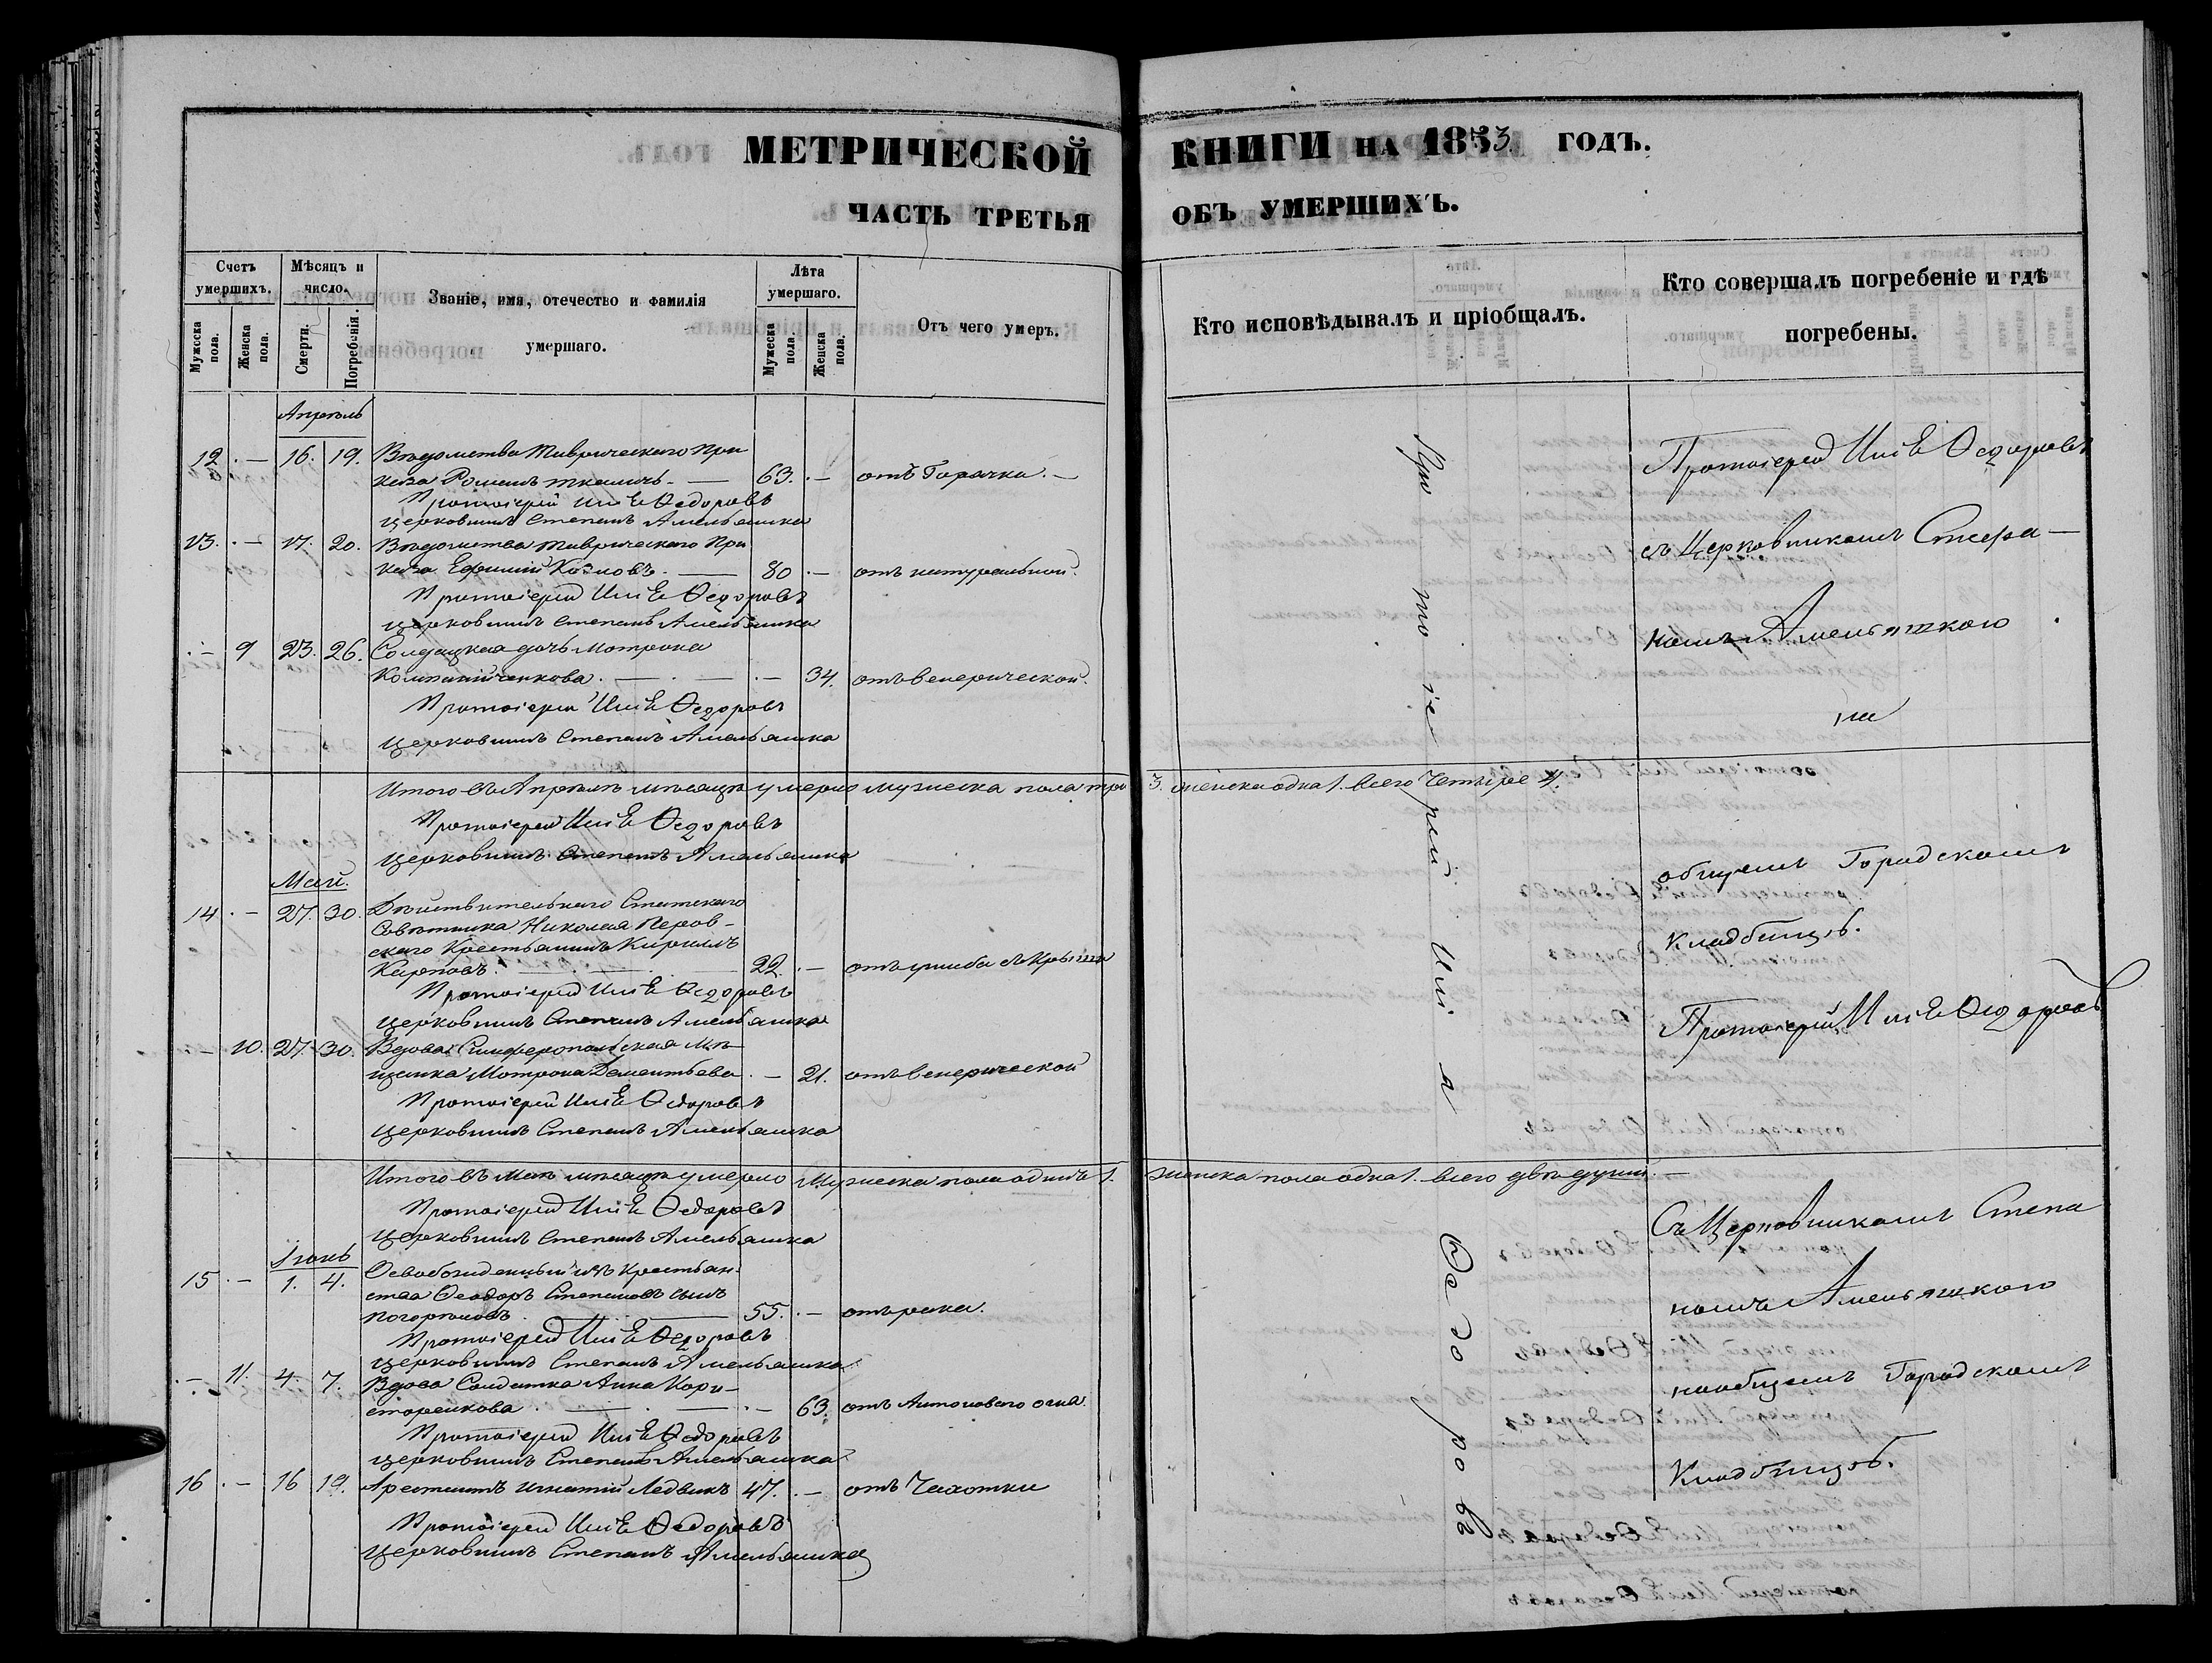 МЕТРИЧЕСКОЙ
ЧАСТЬ ТРЕТЬЯ
Счетъ умершихъ.
Мужеска пола.
Женска пола.
Мѣсяцъ и число.
Смерти.
Погребенія.
Званіе, имя, отечество и фамилія
умершаго.
Лѣта умершаго.
Мужеска пола.
Женска пола.
Отъ чего умеръ.
Апрѣль
12. - 16. 19. Вѣдомства Таврическаго При
каза Романъ Ткачъ. 63. - отъ Горячки.
Протоіерей Илія Ѳедоровъ
Церковникъ Степанъ Амельяшка
13. - 17. 20. Вѣдомства Таврическаго При
каза Ефимій Козловъ. 80 - отъ натуральной.
Протоіерей Илія Ѳедоровъ
Церковникъ Степанъ Амельяшка
- 9 23. 26. Солдацкая дочь Мотрона
Компанійченкова. - 34. отъ венерической.
Протоіерей Илія Ѳедоровъ
Церковникъ Степанъ Амельяшка
Итого въ Апрѣлѣ мѣсяцѣ умерло мужеска пола три
Протоіерей Илія Ѳедоровъ
Церковникъ Степанъ Амельяшка
Май.
14 - 27. 30. Дѣйствительнаго Статскаго
Совѣтника Николая Перов-
скаго Крестьянинъ Кирилъ
Карповъ. 22. - отъ ушиба съ крыши
Протоіерей Илія Ѳедоровъ
Церковникъ Степанъ Амельяшка
- 10. 27. 30. Вдова Симферопольская Мѣ-
щанка Мотрона Дементьева - 21. отъ венерической
Протоіерей Илія Ѳедоровъ
Церковникъ Степанъ Амельяшка
Итого въ Маѣ мѣсяцѣ умерло Мужеска пола одинъ 1.
Протоіерей Илія Ѳедоровъ
Церковникъ Степанъ Амельяшка
Іюнь
15. - 1. 4. Освобожденный изъ крестьян-
ства Ѳеодоръ Степановъ сынъ
Погорѣловъ. 55. - отъ рака.
Протоіерей Илія Ѳедоровъ
Церковникъ Степанъ Амельяшка
- 11. 4. 7. Вдова Солдатка Анна
- 63. отъ Антоноваго огня
Протоіерей Илія Ѳедоровъ
Церковникъ Степанъ Амельяшка
16 - 16 19. Арестантъ Игнатій Ледвикъ 47. - отъ Чахотки
Протоіерей Илія Ѳедоровъ
Церковникъ Степанъ Амельяшка
КНИГИ НА 1853 ГОДЪ.
ОБЪ УМЕРШИХЪ.
Кто исповѣдывалъ и пріобщалъ.
Кто совершалъ погребеніе и гдѣ
погребены.
Протоіерей Илія Ѳедоровъ
Протоіерей Илія Ѳедоровъ
съ Церковникомъ Степа-
номъ Амельяшкою
на
3. женска одна 1. всего Четыре 4.
общемъ Городскомъ
Кладбищѣ.
Протоіерей Илія Ѳедоровъ
женска пола одна 1. всего двѣ души.
Съ Церковникомъ Степа
номъ Амельяшкою
на общемъ Городскомъ
Кладбищѣ.